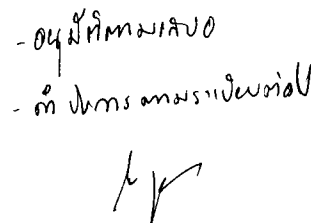 - อนุมัติตามเสนอ
- ดำเนินการตามระเบียบต่อไป